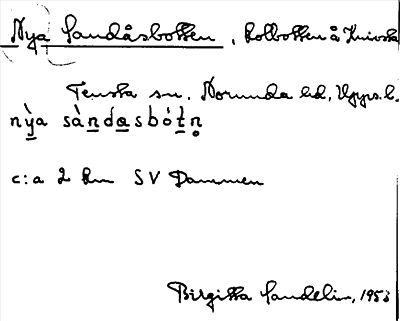 Nya Sandåsbotten, Kolbotten å Knivsta
Tensta sn, Norunda hd, Upps. l.
nỳa sàndasbòtn̥
c:a 2 km SV Dammen
Birgitta Sandelin, 1953